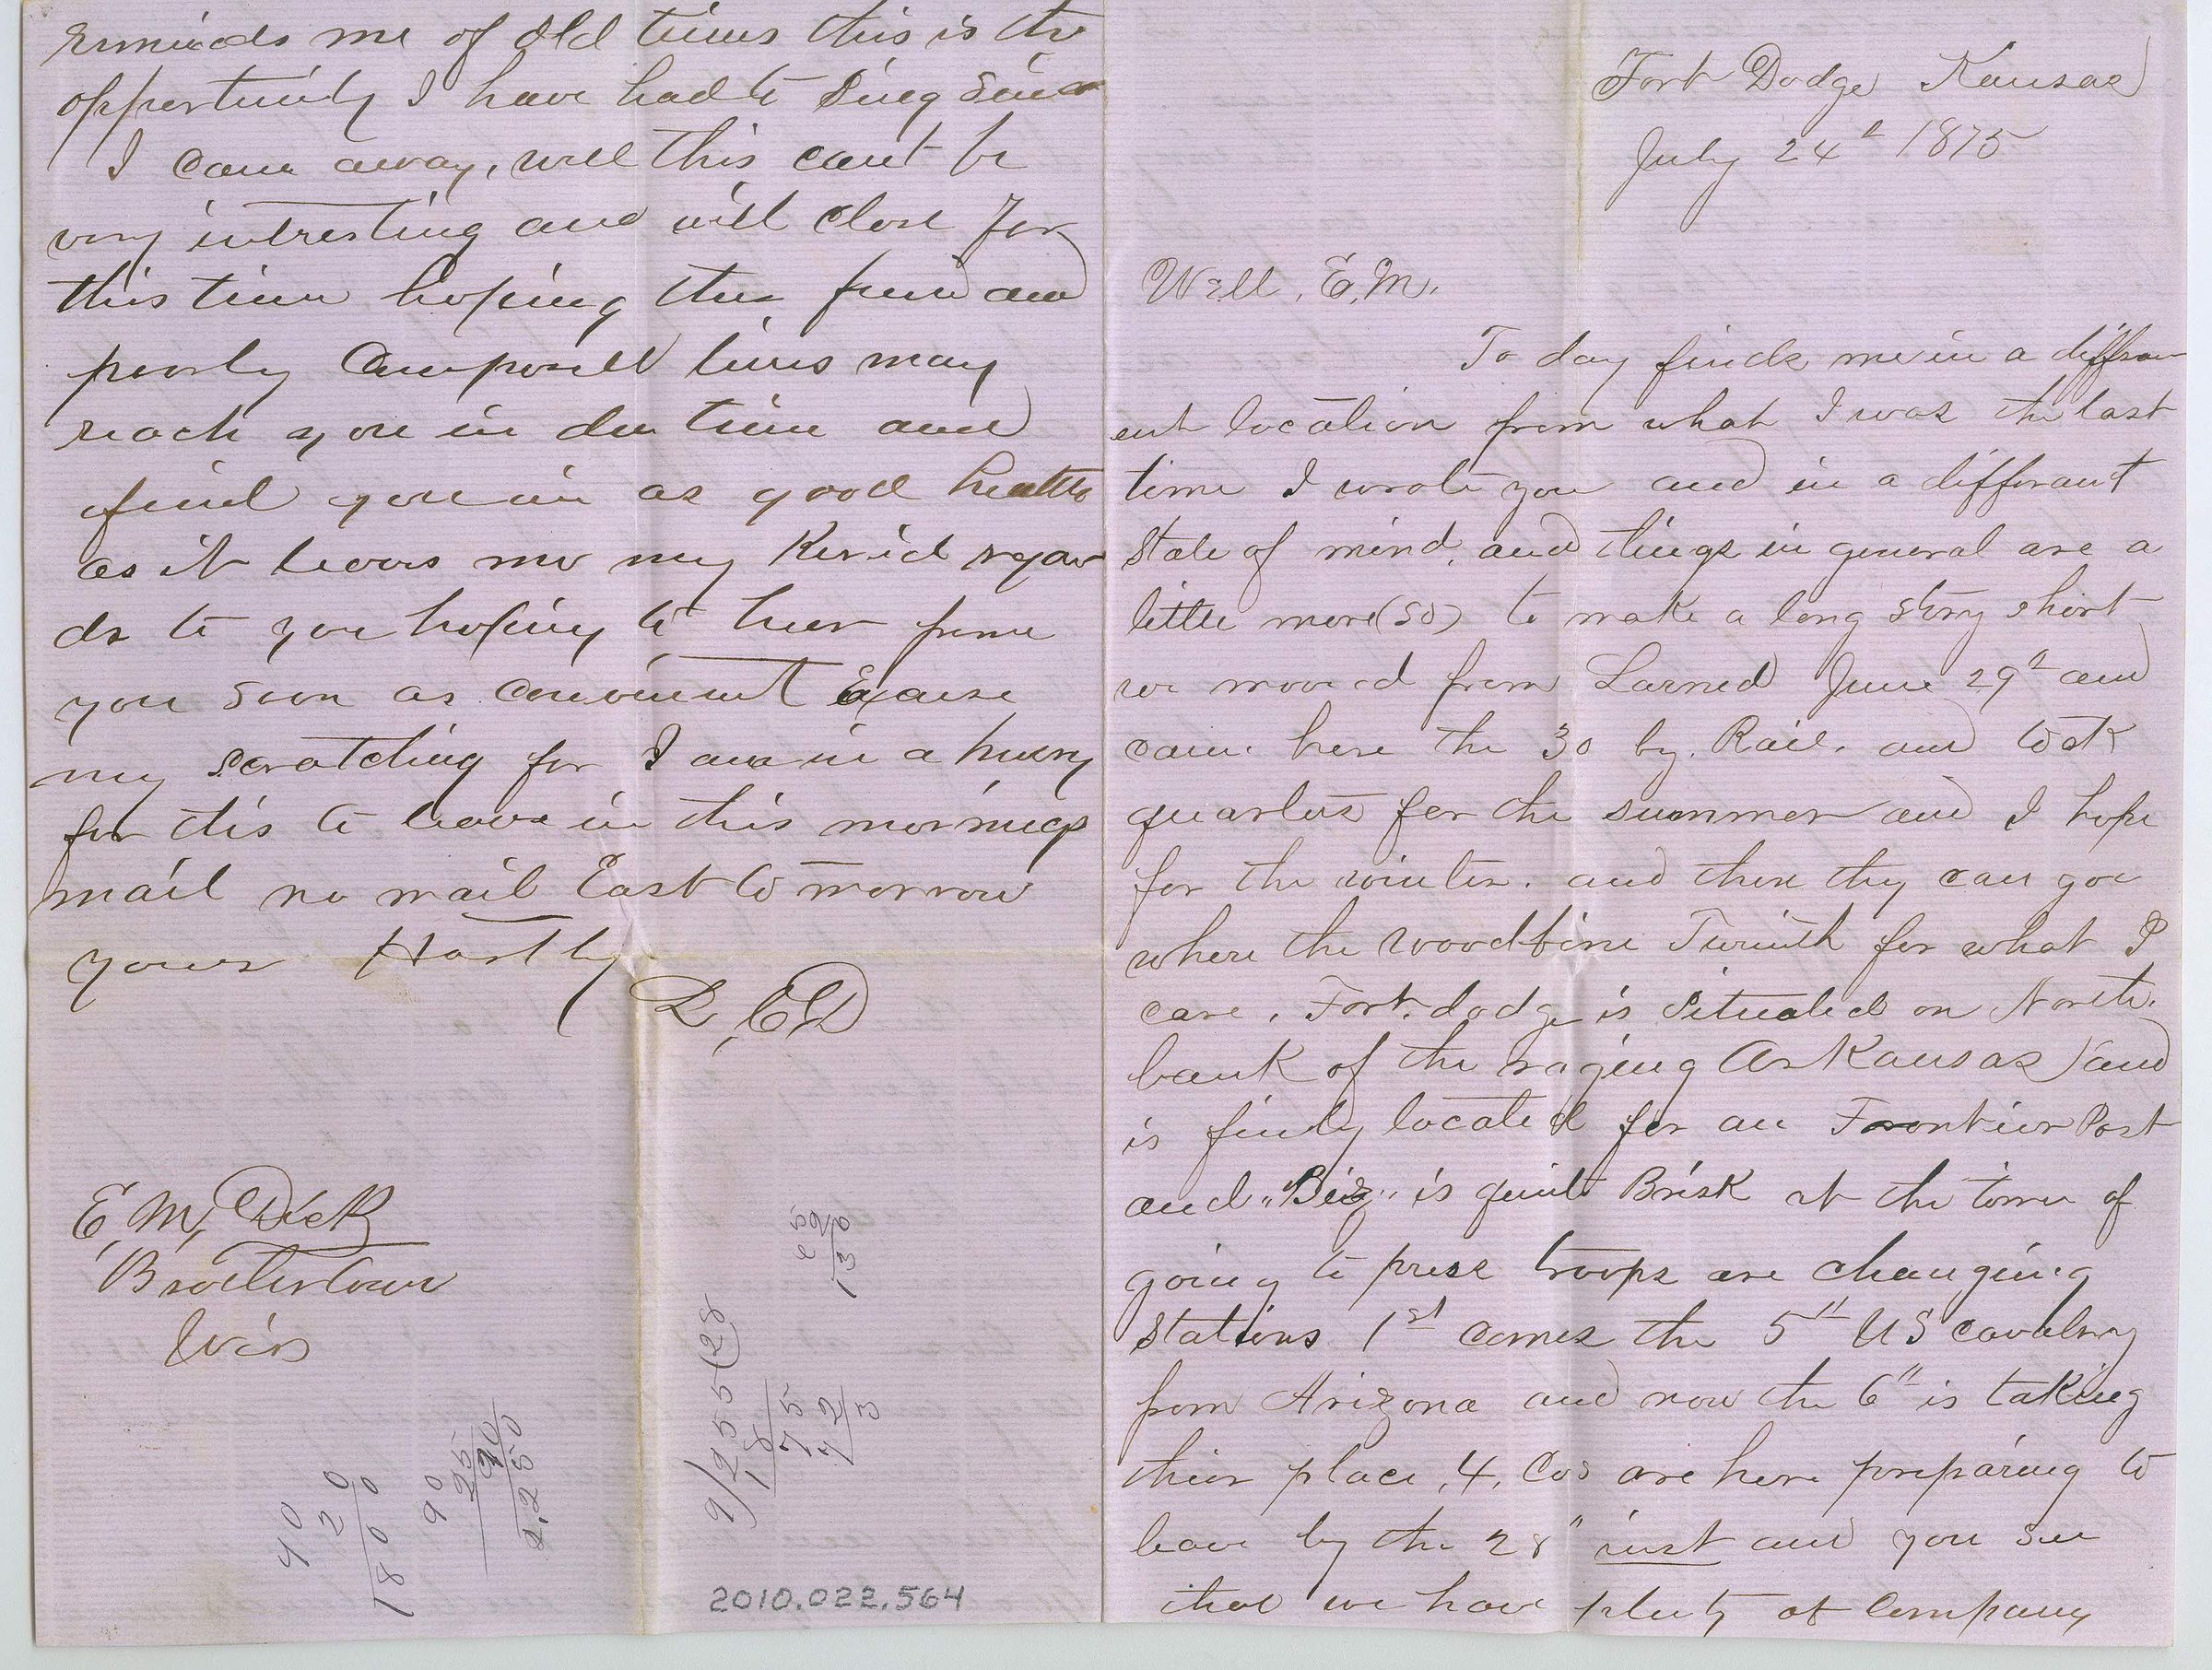 Fort Dodge Kansas
July 24th 1875
Well, E.M.
To day finds me in a differ
ent location from what I was the last
time I wrote you and in a differant
State of mind, and things in general are a
little more (so) to make a long story short
we mooved from Larned June 29th and
came here the 30 by. Rail. and took
quarters for the summer and I hope
for the winter. and then thy can goe
where the woodbine Twineth for what I
care. Fort. dodge is Situated on North.
bank of the raging Arkansas and
is finely located for an Frontier Post
and "Biz" is quite Brisk at the time of
going to press troops are changing
Stations 1st comes the 5th US cavalry
from Arizona and now the 6th is taking
thier place, 4, Cos are here preparing to
leave by the 28" inst and you see
that we have plenty of Company
reminds me of old times this is the
opportunity I have had to Sing Since
I came away, well this cant be
very intresting and will close for
this time hoping these few and
poorly Composed lines may
reach you in due time and
find you in as good health
as it leaves me my Kind regar
ds to you hoping to heer from
you soon as convenient Excuse
my scratching for I am in a hurry
for this to leave in this mornings
mail no mail East to morrow
yours Hartly
E, M, Dick
Brothertown
Wis
90
20
1800
90
25
2.250
9)255(28
18
75
72
3
130
2010.022.564